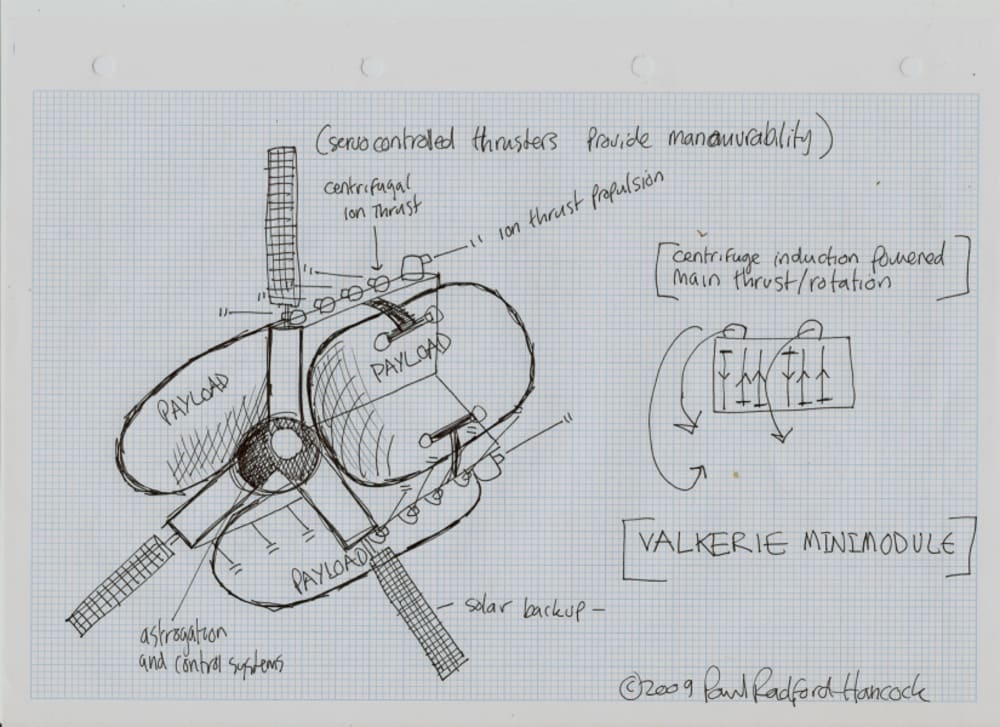 (servo controlled thrusters Provide manouvrability)
centrifugal
Ion Thrust
Ion thrust Propulsion
[centrifuge induction Powered
main thrust/rotation]
PAYLOAD
PAYLOAD
PAYLOAD
[VALKERIE MINIMODULE]
solar backup -
astrogation
and control systems
©2009 Paul Radford-Hancock